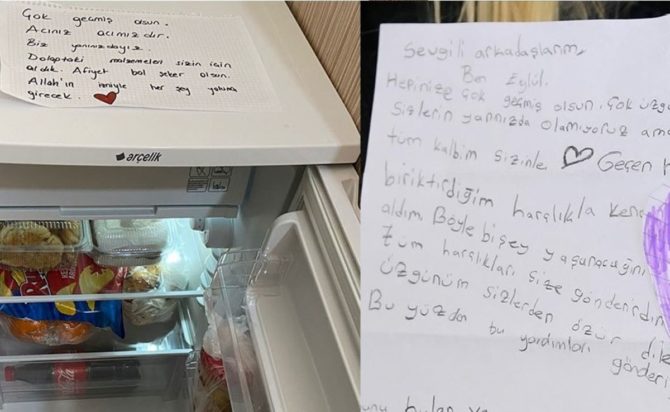 Çok geçmiş olsun.
Acınız acımızdır.
Biz yanınızdayız.
Dolaptaki malzemeleri sizin için
aldık. Afiyet bal şeker olsun.
Allah'ın izniyle her şey yoluna
girecek.
arçelik
Sevgili arkadaşlarım
Ben Eylül.
Hepinize çok geçmiş olsun. Çok üzgü
sizlerin yanınızda olamıyoruz ama
tüm kalbim sizinle Geçen
biriktirdiğim harçlıkla
aldım. Böyle bişey yaşanacağını
tüm harçlıkları size gönderirdim
üzgünüm sizlerden özür
Bu yüzden bu yardımları gönderi